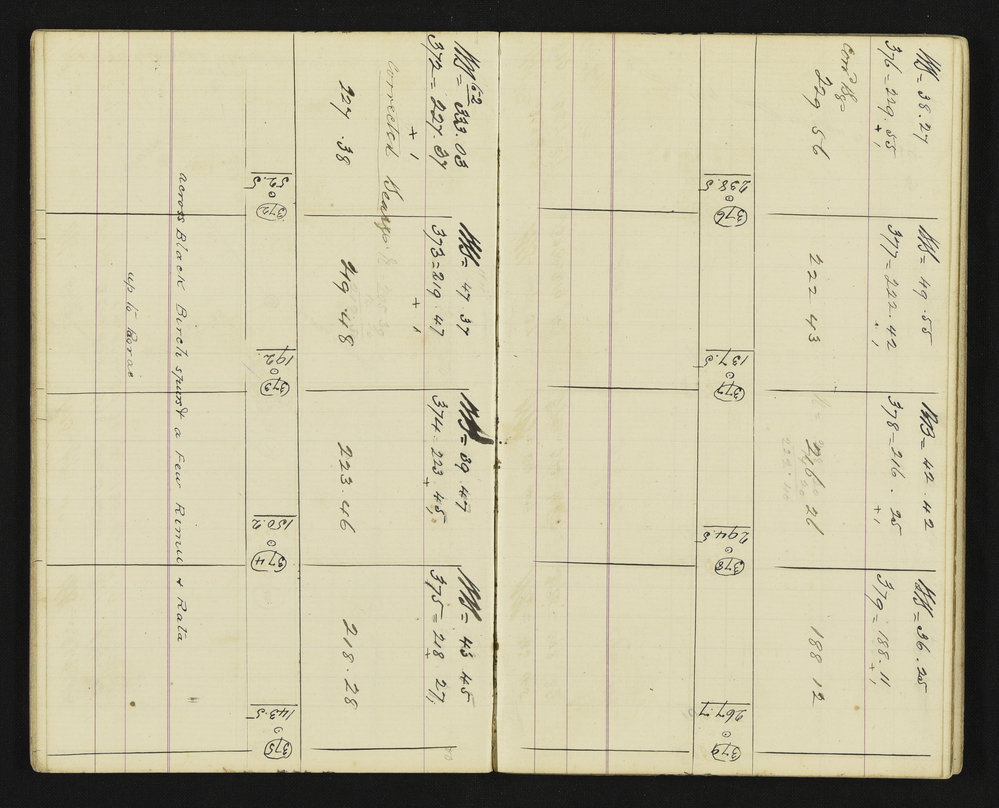 = 333.03
372 = 227.37
+ 1
Corrected
227.38
52.5
372
= 47 37
373 = 219.47
+ 1
219.48
192.
373
= 39.47
374 = 223.45
+
223.46
150.2
374
= 43.45
375 = 218.27
+ 1
218.28
143.5
375
across Black Birch spurs & a few Rimu & Rata
up to
= 38.27
376 = 229.55
+ 1
229 56
238.5
376
= 49.55
377 = 222.42
+ 1
222 43
137.5
377
= 42.42
378 = 216.25
+ 1
216 26
294.5
378
= 36.25
379 = 188.11
+ 1
188 12
267.7
379